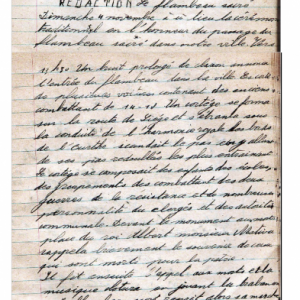 REDACTION Le flambeau sacré
Dimanche 4 novembre a eu lieu la cérémonie
traditionnel en l'honneur du passage du
flambeau sacré dans notre ville. Vers
11 h 30. Un bruit prolongé de clairon annonça
l'entrée du flambeau dans la ville. Escorté
de plusieurs voitures contenant des anciens
combattant de 14-18. Un cortège se forma
sur la route de Liège et s'ébranla sous
la conduite de l'harmonie royale des bords
de l'Ourthe scandait le pas
de ses pas redoublés les plus entrainant
Le cortège se composait des enfants des écoles,
des groupements des combattant des deux
guerres de la résistance et de nombreuses
personnalité du clergés et des autorités
communale. Devant le monument aux morts
place du roi Albert monsieur
rappela brièvement le souvenir de ceux
qui sont morts pour la patrie
Il fit ensuite l'appel aux morts et la
musique en jouant la brabançonne